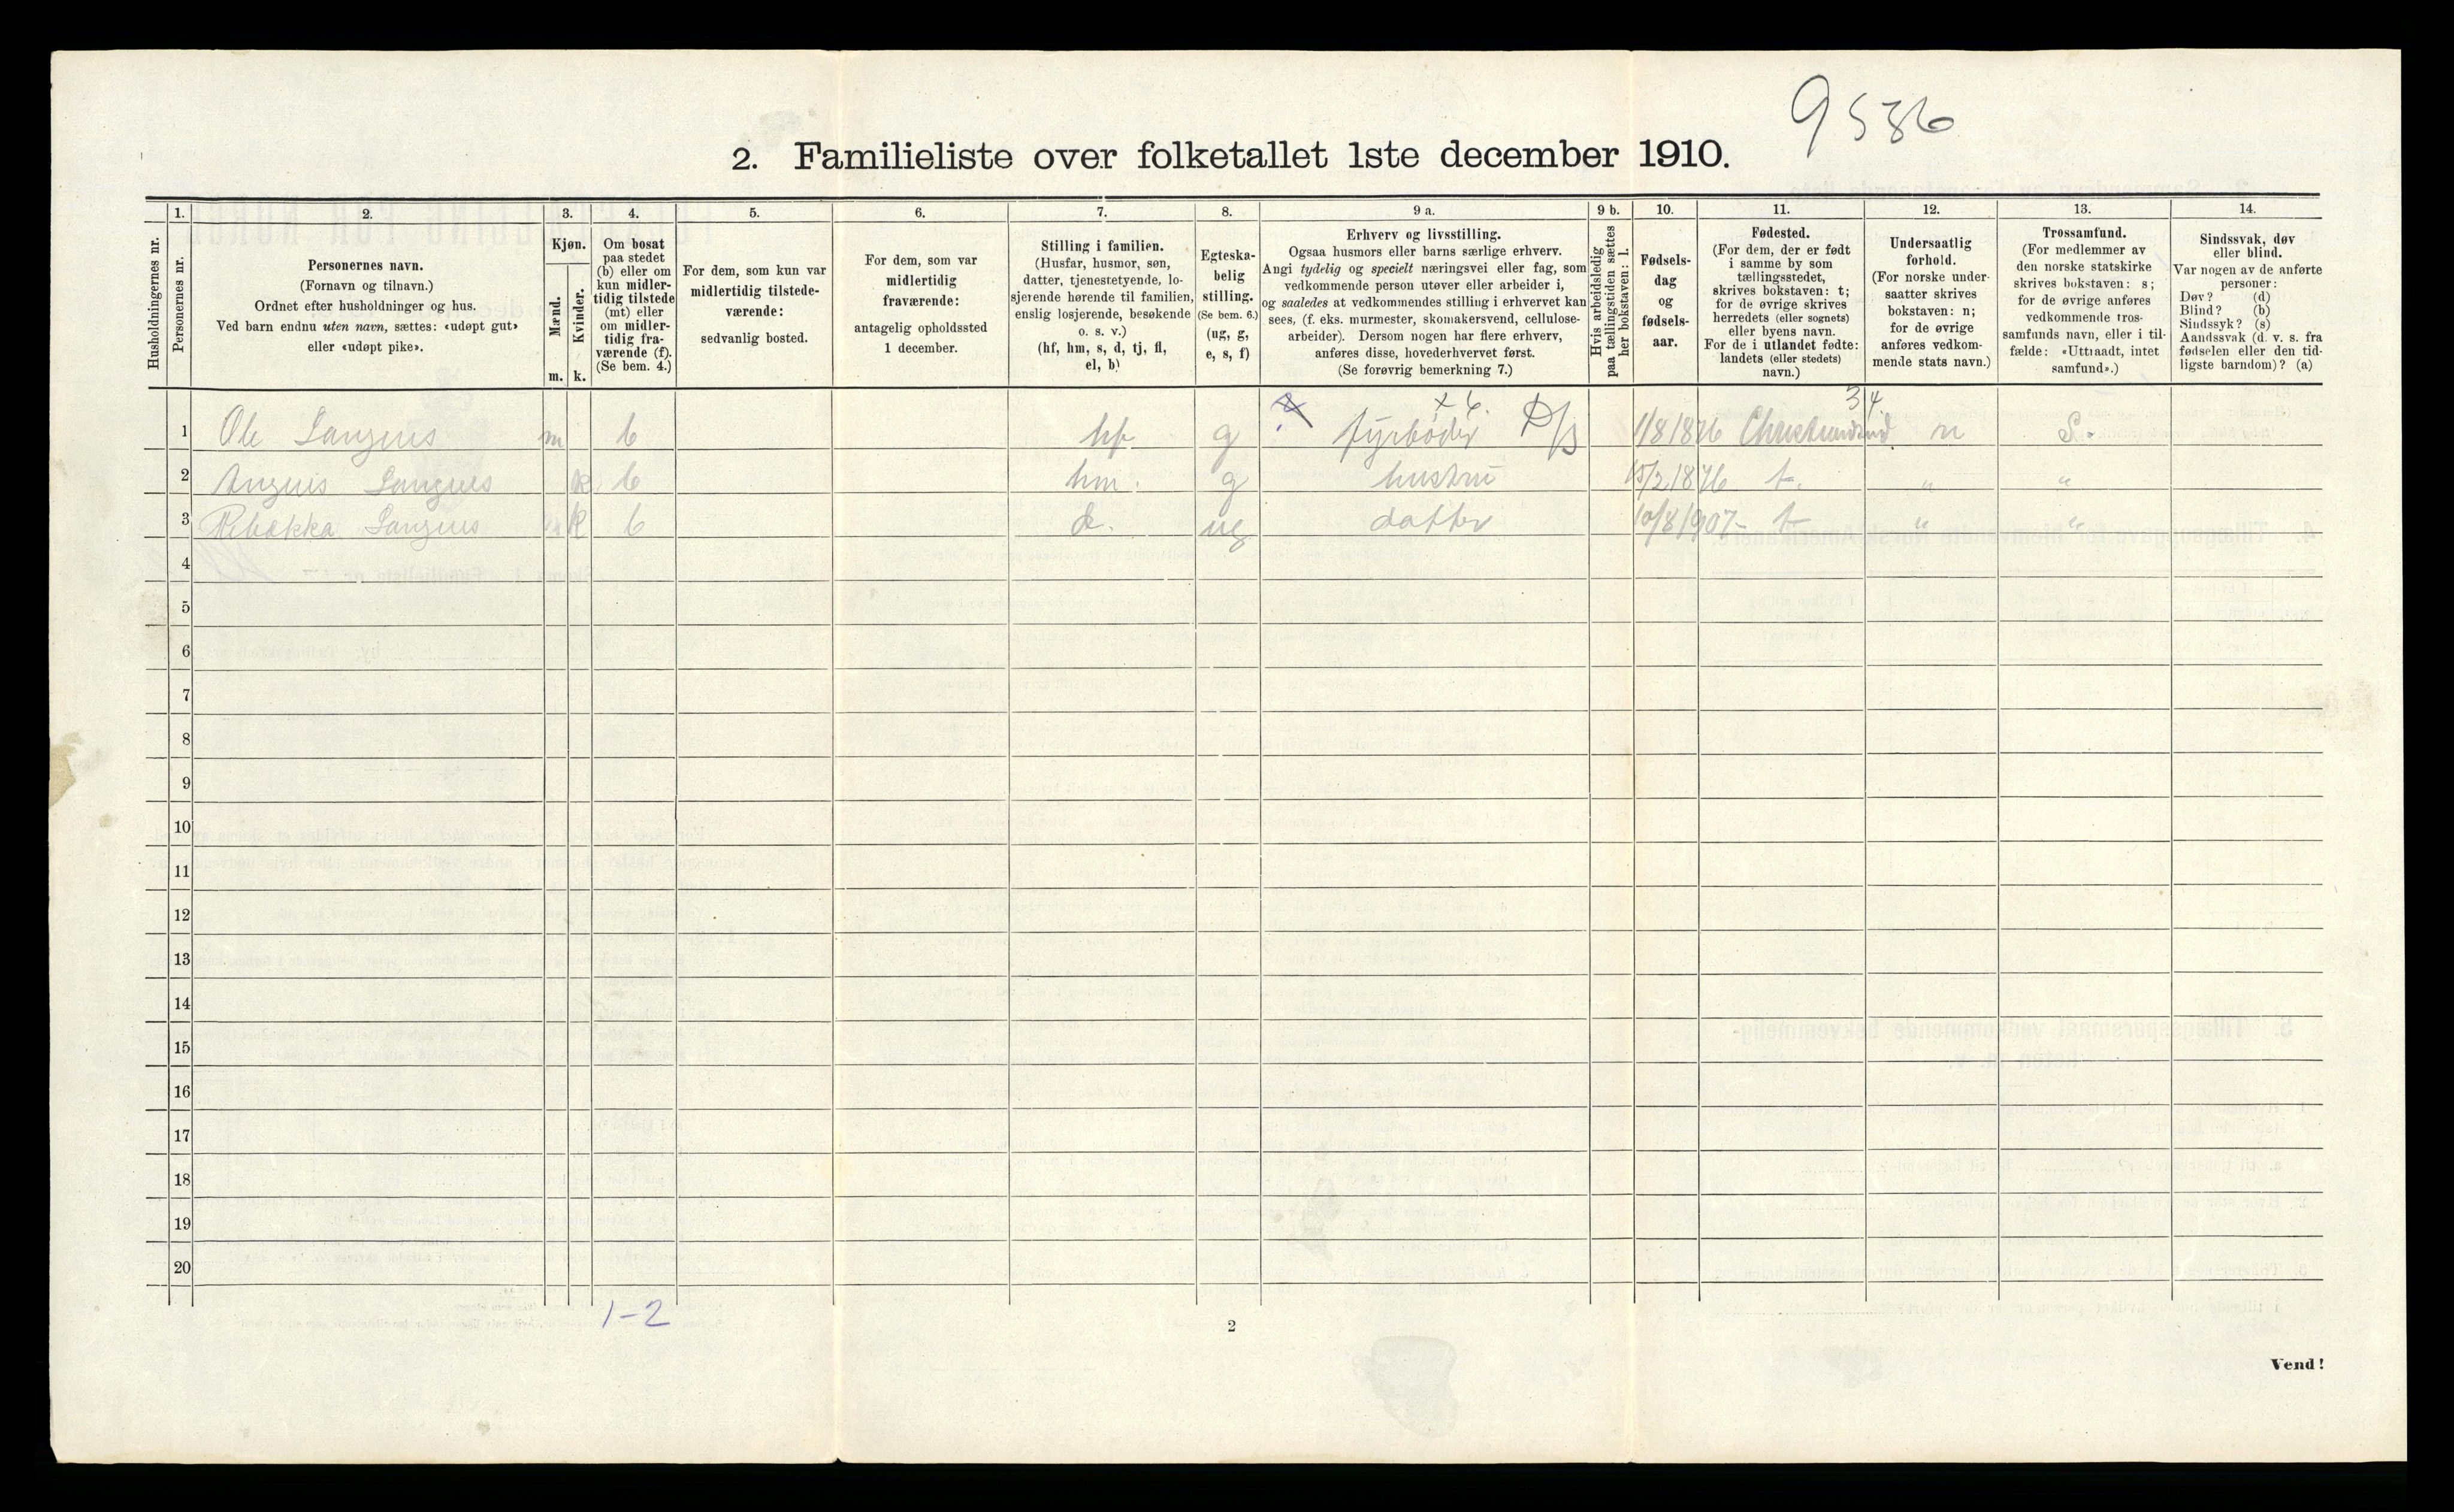 9536
2. Familieliste over folketallet 1ste december 1910.
1. 2. 3. 4. 5. 6. 7. 8. 9 a. 9 b. 10. 11. 12. 13. 14.
Husholdningernes nr.
Personernes nr.
Personernes navn.
(Fornavn og tilnavn.)
Ordnet efter husholdninger og hus.
Ved barn endnu uten navn, sættes: «udøpt gut»
eller «udøpt pike».
Kjøn.
Mænd.
Kvinder.
m. k.
Om bosat
paa stedet
(b) eller om
kun midler-
tidig tilstede
(mt) eller
om midler-
tidig fra-
værende (f).
(Se bem. 4.)
For dem, som kun var
midlertidig tilstede-
værende:
sedvanlig bosted.
For dem, som var
midlertidig
fraværende:
antagelig opholdssted
1 december.
Stilling i familien.
(Husfar, husmor, søn,
datter, tjenestetyende, lo-
sjerende hørende til familien,
enslig losjerende, besøkende
o. s. v.)
(hf, hm, s, d, tj, fl,
el, b)
Egteska-
belig
stilling.
(Se bem. 6.)
(ug, g,
e, s, f)
Erhverv og livsstilling.
Ogsaa husmors eller barns særlige erhverv.
Angi tydelig og specielt næringsvei eller fag, som
vedkommende person utøver eller arbeider i,
og saaledes at vedkommendes stilling i erhvervet kan
sees, (f. eks. murmester, skomakersvend, cellulose-
arbeider). Dersom nogen har flere erhverv,
anføres disse, hovederhvervet først.
(Se forøvrig bemerkning 7.)
Hvis arbeidsledig
paa tællingstiden sættes
her bokstaven: l.
Fødsels-
dag
og
fødsels-
aar.
Fødested.
(For dem, der er født
i samme by som
tællingsstedet,
skrives bokstaven: t;
for de øvrige skrives
herredets (eller sognets)
eller byens navn.
For de i utlandet fødte:
landets (eller stedets)
navn.)
Undersaatlig
forhold.
(For norske under-
saatter skrives
bokstaven: n;
for de øvrige
anføres vedkom-
mende stats navn.)
Trossamfund.
(For medlemmer av
den norske statskirke
skrives bokstaven: s;
for de øvrige anføres
vedkommende tros-
samfunds navn, eller i til-
fælde: «Uttraadt, intet
samfund».)
Sindssvak, døv
eller blind.
Var nogen av de anførte
personer:
Døv? (d)
Blind? (b)
Sindssyk? (s)
Aandssvak (d. v. s. fra
fødselen eller den tid-
ligste barndom)? (a)
34
1 Ole m b hf g fyrbøder D/s 1/8 1876 Christiansund n S.
2 k b hm. g hustru 15/2 1876 t. " "
3 Rebekka k b d. ug datter 10/8 1907 t " "
4
5
6
7
8
9
10
11
12
13
14
15
16
17
18
19
20
1-2
2
Vend!